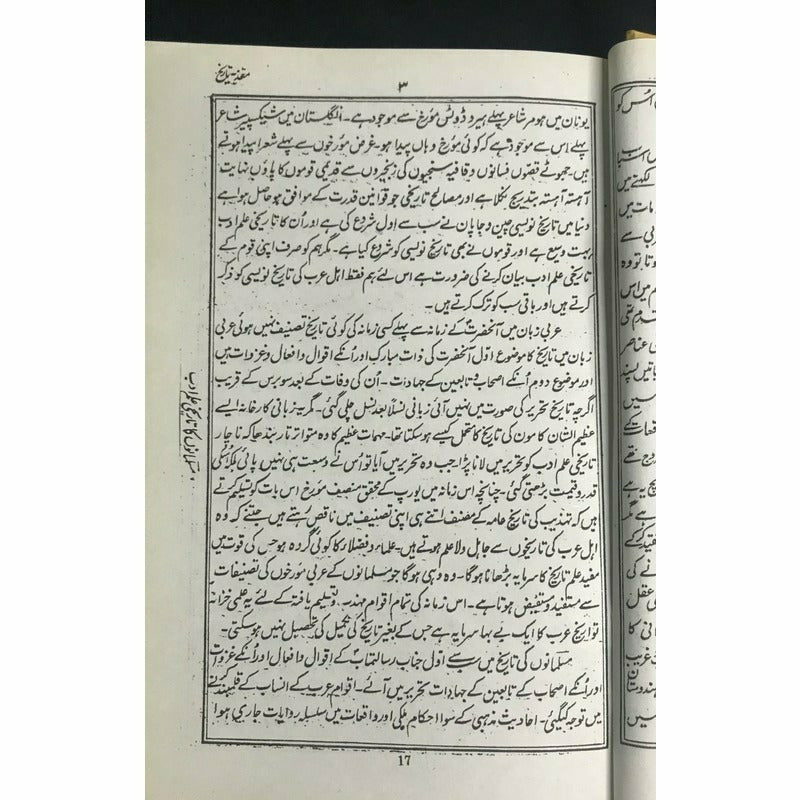 مقدمہ تاریخ
۳
یونان میں ہومر شاعر پہلے ہیروڈوٹس مورخ سے موجود ہے۔ انگلستان میں شیکسپیر شاعر
پہلے اس سے موجود ہے کہ کوئی مورخ وہاں پیدا ہو۔ غرض مورخوں سے پہلے شعرا پیدا ہوتے
ہیں۔ جھوٹے قصوں فسانوں وقافیہ سنجیوں کی زنجیروں سے قدیمی قوموں کا پاؤں نہایت
آہستہ آہستہ بتدریج نکلا ہے اور مصالح تاریخی جو قوانین قدرت کے موافق ہو حاصل ہوا ہے
دنیا میں تاریخ نویسی چین و جاپان نے سب سے اول شروع کی ہے اور اُن کا تاریخی علم ادب
بہت وسیع ہے اور قوموں نے بھی تاریخ نویسی کو شروع کیا ہے۔ مگر ہم کو صرف اپنی قوم کے
تاریخی علم ادب بیان کرنے کی ضرورت ہے اس لئے ہم فقط اہل عرب کی تاریخ نویسی کو ذکر
کرتے ہیں اور باقی سب کو ترک کرتے ہیں۔
عربی زبان میں آنحضرتؐ کے زمانہ سے پہلے کسی زمانہ کی کوئی تاریخ تصنیف نہیں ہوئی عربی
زبان میں تاریخ کا موضوع اول آنحضرت کی ذات مبارک اور اُنکے اقوال وافعال وغزوات ہیں
اور موضوع دوم اُنکے اصحاب و تابعین کے جہادات۔ اُن کی وفات کے بعد سو برس کے قریب
اگرچہ تاریخ تحریر کی صورت میں نہیں آئی زبانی نسلاً بعد نسل چلی گئی۔ مگر یہ زبانی کارخانہ ایسے
عظیم الشان کاموں کی تاریخ کا متحمل کیسے ہوسکتا تھا۔ مہمات عظیم کا وہ متواتر تار بندھا کہ ناچار
تاریخی علم ادب کو تحریر میں لانا پڑا جب وہ تحریر میں آیا تو اُس نے وسعت ہی نہیں پائی بلکہ اُسکی
قدر و قیمت بڑھتی گئی۔ چنانچہ اس زمانہ میں یورپ کے محقق منصف مورخ اس بات کو تسلیم کرتے
ہیں کہ تہذیب کی تاریخ عامہ کے مصنف اتنے ہی اپنی تصنیف میں ناقص رہتے ہیں جتنے کہ وہ
اہل عرب کی تاریخوں سے جاہل ولاعلم ہوتے ہیں۔ علماء و فضلاء کا کوئی گروہ ہو جس کی قوت میں
مفید علم تاریخ کا سرمایہ بڑھانا ہوگا۔ وہ وہی ہوگا جو مسلمانوں کے عربی مورخوں کی تصنیفات
سے مستفید ومستفیض ہوتا ہے۔ اس زمانہ کی تمام اقوام مہذب و تعلیم یافتہ کے لئے یہ علمی خزانہ
تواریخ عرب کا ایک بے بہا سرمایہ ہے جس کے بغیر تاریخ کی تکمیل کی تحصیل نہیں ہوسکتی۔
مسلمانوں کی تاریخ میں سب سے اول جناب رسالتمآبؐ کے اقوال وافعال اور اُنکے غزوات
اور اُنکے اصحاب کے تابعین کے جہادات تحریر میں آئے۔ اقوام عرب کے انساب کے قلمبند کرنے
میں توجہ کیگئی۔ احادیث مذہبی کے سوا احکام ملکی اور واقعات میں سلسلہ روایات جاری ہوا
مسلمانوں کا تاریخی علم ادب
17
اُس کو
لکھنے میں
مات میں
ربی سے
وتا تو وہ
م میں اس
ی عناصر
باتیں پسند
میں
قعات کے
ج یہ ہے
ہے مگر
نے کی
ی عقل
انی کا
ت غریب
ہندوستان
میں